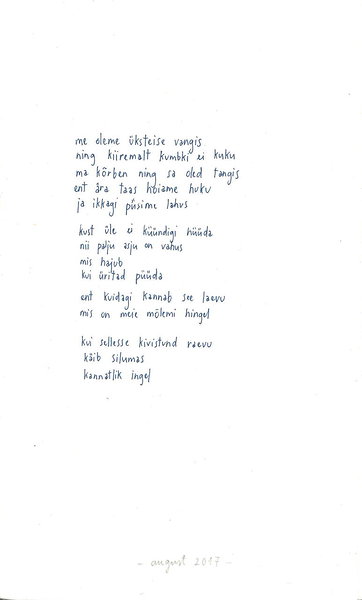 me oleme üksteise vangis
ning kiiremalt kumbki ei kuku
ma kõrben ning sa oled tangis
ent ära taas hõiame huku
ja ikkagi püsime lahus
kust üle ei küündigi hüüda
nii palju asju on vahus
mis hajub
kui üritad püüda
ent kuidagi kannab see laevu
mis on meie mõlemi hingel
kui sellesse kivistund raevu
käib silumas
kannatlik ingel
- august 2017 -